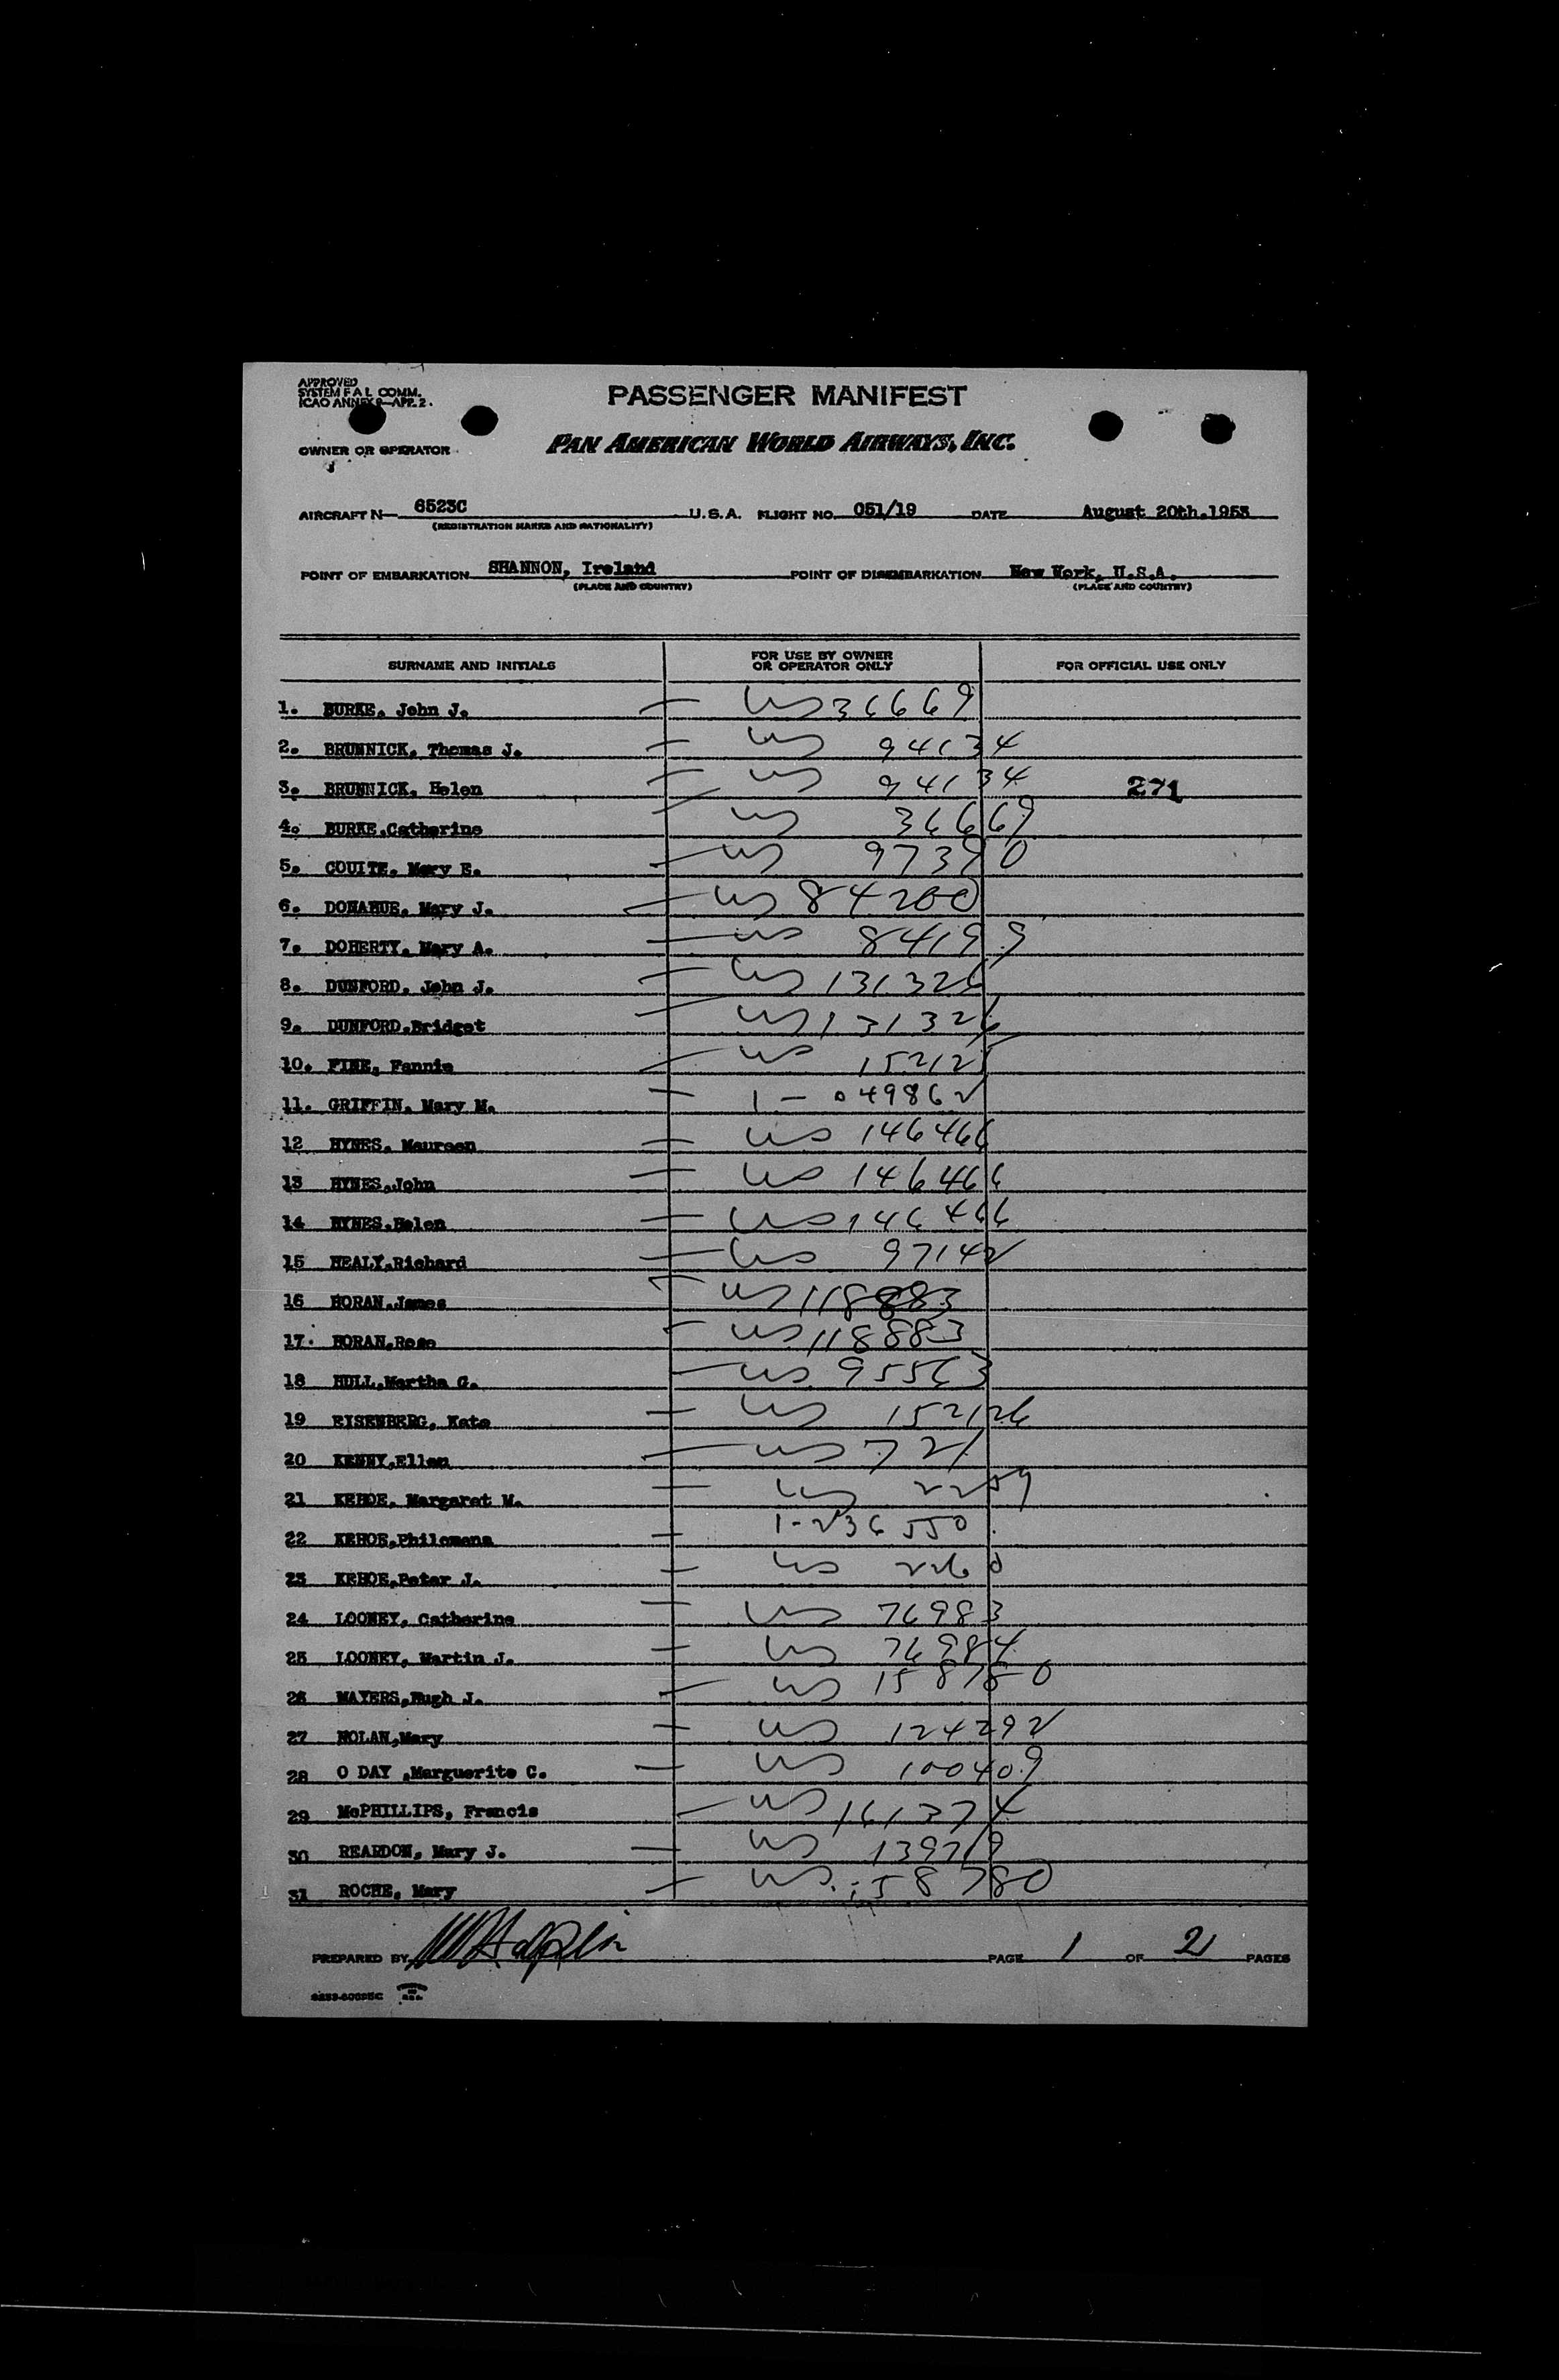 APPROVED
SYSTEM F A L COMM.
ICAO ANNEX 9—APP. 2.
PASSENGER MANIFEST
OWNER OR OPERATOR
PAN AMERICAN WORLD AIRWAYS, INC.
AIRCRAFT N— 6523C U.S.A. FLIGHT NO. 051/19 DATE August 20th.1953
(REGISTRATION MARKS AND NATIONALITY)
POINT OF EMBARKATION SHANNON, Ireland POINT OF DISEMBARKATION New York, U.S.A.
(PLACE AND COUNTRY) (PLACE AND COUNTRY)
SURNAME AND INITIALS FOR USE BY OWNER OR OPERATOR ONLY FOR OFFICIAL USE ONLY
1. BURKE, John J. — US 36669
2. BRUNNICK, Thomas J. — US 94134
3. BRUNNICK, Helen — US 94134 271
4. BURKE.Catherine — US 36669
5. COUITE, Mary E. — US 97390
6. DONAHUE, Mary J. — US 84200
7. DOHERTY, Mary A. — US 84199
8. DUNFORD, John J. — US 131326
9. DUNFORD.Bridget — US 131326
10. FINE, Fannie — US 152125
11. GRIFFIN, Mary M. — 1 - 049862
12 HYNES, Maureen — US 146466
13 HYNES.John — US 146466
14 HYNES.Helen — US 146466
15 HEALY.Richard — US 97142
16 HORAN.James — US 118883
17. HORAN.Rose — US 118883
18 HULL.Martha G. — US 95563
19 EISENBERG, Kate — US 152126
20 KENNY.Ellen — US 721
21 KEHOE, Margaret M. — US 2259
22 KEHOE.Philomena — 1-236550
23 KEHOE.Peter J. — US 2260
24 LOONEY, Catherine — US 76983
25 LOONEY, Martin J. — US 76984
26 MAYERS,Hugh J. — US 158780
27 NOLAN,Mary — US 124292
28 O DAY ,Marguerite C. — US 100409
29 McPHILLIPS, Francis — US 161374
30 REARDON, Mary J. — US 139719
31 ROCHE, Mary — US 158780
PREPARED BY PAGE 1 OF 2 PAGES